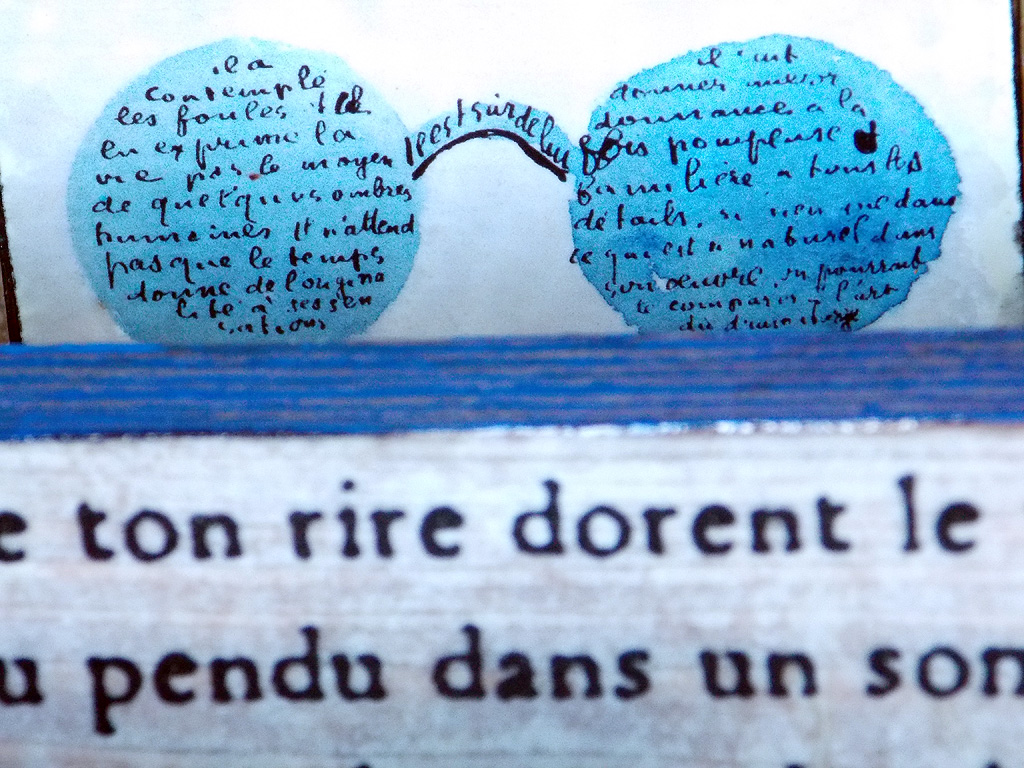 il a
contemplé
les foules il
en exprime la
vie par le moyen
de quelques ombres
humaines Il n'attend
pas que le temps
donne de l'origina
lité à ses sen
sations
il est sûr de lui
il sut
donner une or
donnance à la
fois pompeuse et
familière à tous les
détails. si rien ne dans
ce qui est naturel dans
son oeuvre, on pourrait
le comparer à l'art
du dramaturge
e ton rire dorent le
u pendu dans un som